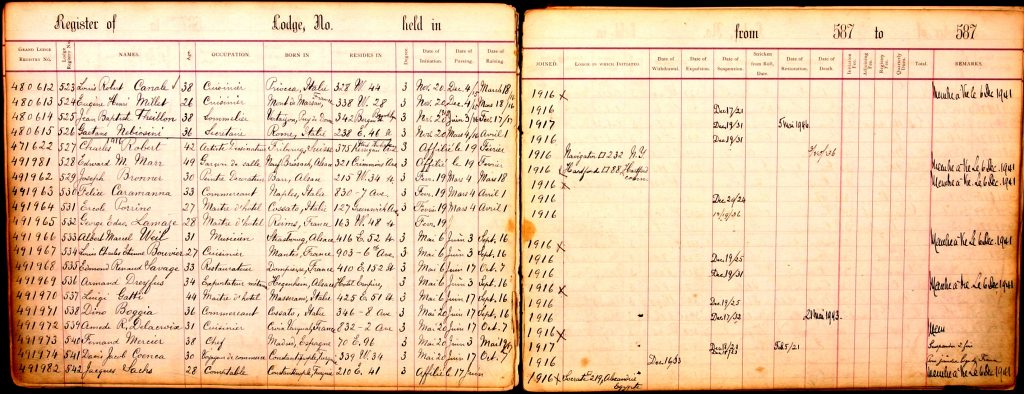 Register of Lodge, No. held in
GRAND LODGE REGISTRY NO. Lodge Register No. NAMES. Age OCCUPATION. BORN IN RESIDES IN Degree Date of Initiation. Date of Passing. Date of Raising.
480612 523 Louis Robert Canale 38 Cuisinier Italie 328 W. 44 3 Nov. 20 Dec. 4 March 18
480613 524 Eugène Henri Millet 26 Cuisinier France 338 W. 28 3 Nov. 20 Dec. 4 Mars 18/16
480614 525 Jean Baptist Theillon 38 Sommelier 342 3 Nov. 20 Fev. 17/17
480615 526 Gaetano Nebiosini 36 Secretaire Rome, Italie 238 E. 46 3 Nov. 20 Mars 4/16 Avril 1
1916
471622 527 Charles Robert 42 Artiste Dessinateur Fribourg, Suisse 375 3 Affilié le 19 Février
491981 528 Edward M. Marr 49 Garçon de salle Neuf Brisach, Alsace 321 Ave 3 Affilié le 19 Février
491962 529 Joseph Bronner 30 Peintre Decorateur Barr, Alsace 215 W. 34 3 Fev. 19 Mars 4 Mars 18
491963 530 Felice Caramanna 33 Commercant Naples, Italie 830 - 7 Ave. 3 Fev. 19 Mars 4 Avril 1
491964 531 Ercole Porrino 27 Maitre d'hotel Cossato, Italie 127 Greenwich Ave 3 Fevrie 19 Mars 4 Avril 1
491965 532 George Eder Lamaze 28 Maitre d'hotel Reims, France 163 W. 48 3 Fev. 19
491966 533 Albert Marcel Weil 31 Musicien Strasbourg, Alsace 416 E. 52 3 Mai 6 Juin 3 Sept. 16
491967 534 Louis Charles Etienne Bouvier 27 Cuisinier Mantes, France 903 - 6th Ave. 3 Mai 6 Juin 3 Sept. 16
491968 535 Edmond Renaud Savage 33 Restaurateur Dompierre, France 410 E. 152 St 3 Mai 6 Juin 17 Oct. 7
491969 536 Armand Dreyfus 34 Hegenheim, Alsace Hotel Empire, 3 Mai 6 Juin 3 Sept. 16
491970 537 Luigi Gatti 44 Maitre d'hotel Masserano, Italie 425 E. 51 St. 3 Mai 6 Juin 17 Sept. 16
491971 538 Dino Boggia 36 Commercant Cossato, Italie 346 - 8 Ave 3 Mai 20 Juin 17 Sept. 16
491972 539 Amede R. Delacroix 31 Cuisinier France 832 - 2 Ave 3 Mai 20 Juin 17 Oct. 7
491973 540 Fernand Mercier 38 Chef Madrid, Espagne 70 E. 96 3 Mai 20 Juin 3
491974 541 Davis Jacob Coenca 30 Voyageur de commerce Constantinople, Turquie 339 W. 34 3 Mai 20 Juin 17 Oct. 7
491982 542 Jacques Sachs 28 Comptable Constantinople, Turquie 210 E. 41 3 Affilié le 17 Juin
from 587 to 587
JOINED. LODGE IN WHICH INITIATED. Date of Withdrawal. Date of Expulsion. Date of Suspension. Stricken from Roll, Date. Date of Restoration. Date of Death. Initiation Fee. Affiliation Fee. Registry Fee. Quarterly Dues. Total. REMARKS.
1916 x Membre à Vie le 6 Dec. 1941
1916 Dec 17/21
1917 Dec 19/31 5 Mai 1946
1916 Dec 19/31
1916 Navigator 232 N.Y.
1916 Hartford 88 Hartford Conn Membre à Vie le 6 Dec. 1941
1916 x Membre à Vie Le 6 Dec. 1941
1916 Dec 20/24
1916
1916 x Membre à Vie Le 6 Dec. 1941
1916 Dec 19/25
1916 Dec 19/31
1916 x Membre à Vie Le 6 Dec 1941
1916 Dec 19/25
1916 Dec 17/32 21 Mai 1943.
1916 x
1917 Feb 5/21
1916 Dec 16 33
1916 x Socrate 219, Alexandrie Egypte Membre à Vie le 6 Dec. 1941